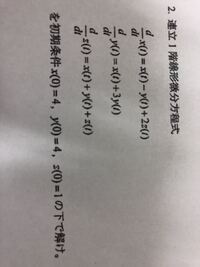 2. 連立1階線形微分方程式
d/dt x(t) = x(t) - y(t) + 2z(t)
d/dt y(t) = x(t) + 3y(t)
d/dt z(t) = x(t) + y(t) + z(t)
を初期条件 x(0) = 4, y(0) = 4, z(0) = 1 の下で解け。